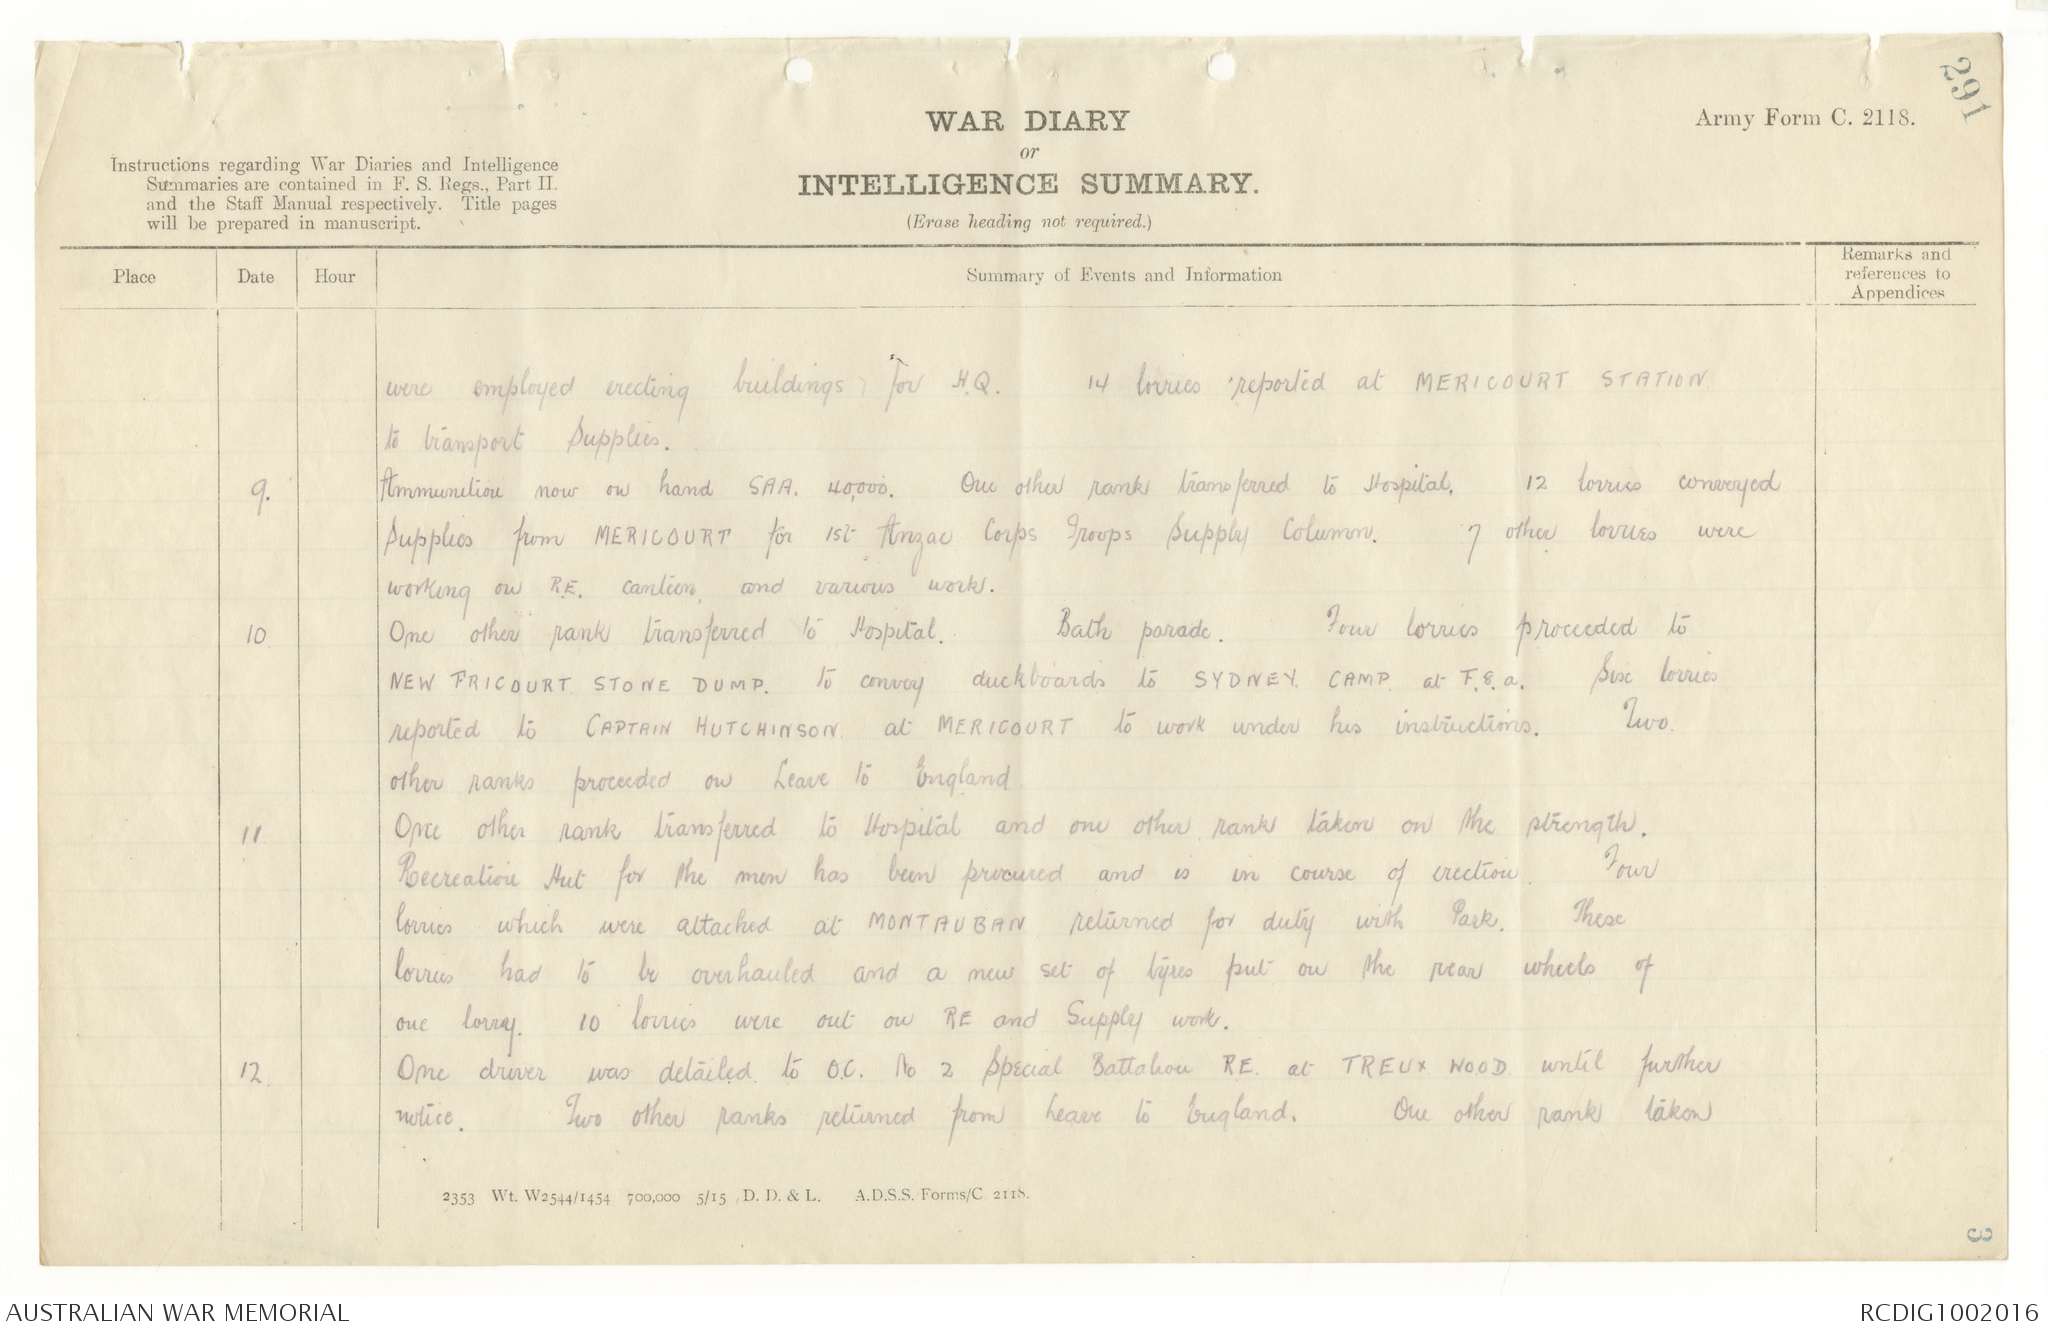 291
WAR DIARY
or
INTELLIGENCE SUMMARY.
(Erase heading not required.)
Army Form C. 2118.
Instructions regarding War Diaries and Intelligence
Summaries are contained in F. S. Regs., Part II.
and the Staff Manual respectively. Title pages
will be prepared in manuscript.
Place Date Hour Summary of Events and Information Remarks and
references to
Appendices
were employed erecting buildings for H.Q. 14 lorries reported at MERICOURT STATION
to transport Supplies.
9. Ammunition now on hand SAA. 40,000. One other rank transferred to Hospital. 12 lorries conveyed
Supplies from MERICOURT for 1st Anzac Corps Troops Supply Column. 7 other lorries were
working on R.E. canteen, and various work.
10 One other rank transferred to Hospital. Bath parade. Four lorries proceeded to
NEW FRICOURT STONE DUMP. to convey duckboards to SYDNEY CAMP at F.8.a. Six lorries
reported to CAPTAIN HUTCHINSON at MERICOURT to work under his instructions. Two
other ranks proceeded on Leave to England
11 One other rank transferred to Hospital and one other rank taken on the strength.
Recreation Hut for the men has been procured and is in course of erection. Four
lorries which were attached at MONTAUBAN returned for duty with Park. These
lorries had to be overhauled and a new set of tyres put on the rear wheels of
one lorry. 10 lorries were out on RE and Supply work.
12 One driver was detailed to O.C. No 2 Special Battalion R.E. at TREUX WOOD until further
notice. Two other ranks returned from Leave to England. One other rank taken
2353 Wt. W2544/1454 700,000 5/15 D. D. & L. A.D.S.S. Forms/C. 2118.
3
AUSTRALIAN WAR MEMORIAL
RCDIG1002016